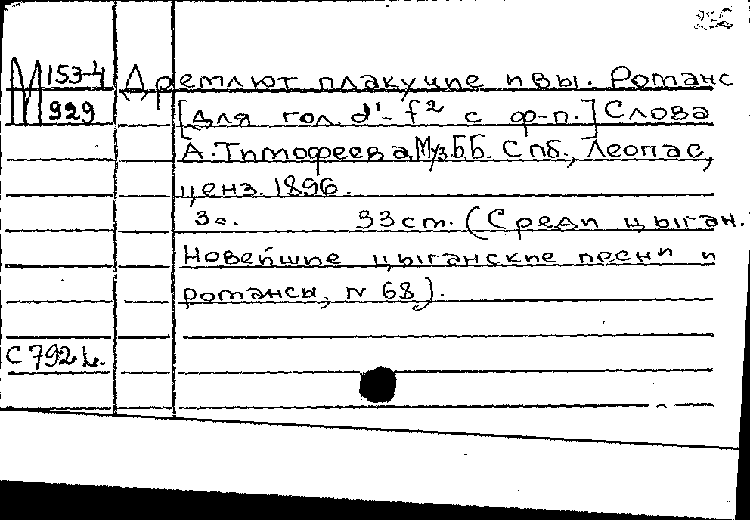 236
М 153-4
929
Дремлют плакучие ивы. Романс
[Для гол. d¹-f² с ф-п.] Слова
А.Тимофеева. Муз. Б.Б. Спб., Леопас,
ценз. 1896.
3с. 33 ст. (Среди цыган.
Новейшие цыганские песни и
романсы, № 68).
С 792